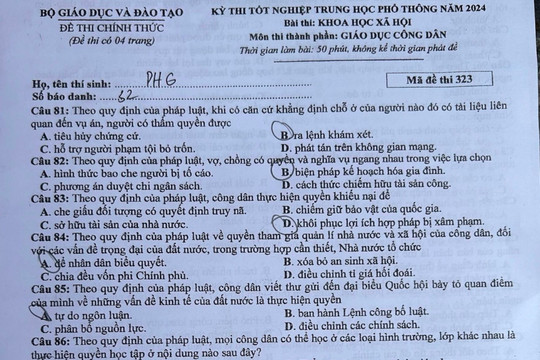 BỘ GIÁO DỤC VÀ ĐÀO TẠO
ĐỀ THI CHÍNH THỨC
(Đề thi có 04 trang)
KỲ THI TỐT NGHIỆP TRUNG HỌC PHỔ THÔNG NĂM 2024
Bài thi: KHOA HỌC XÃ HỘI
Môn thi thành phần: GIÁO DỤC CÔNG DÂN
Thời gian làm bài: 50 phút, không kể thời gian phát đề
Họ, tên thí sinh: PH.G
Số báo danh: 62
Mã đề thi 323
Câu 81: Theo quy định của pháp luật, khi có căn cứ khẳng định chỗ ở của người nào đó có tài liệu liên
quan đến vụ án, người có thẩm quyền được
A. tiêu hủy chứng cứ. B. ra lệnh khám xét.
C. hỗ trợ người phạm tội bỏ trốn. D. phát tán trên không gian mạng.
Câu 82: Theo quy định của pháp luật, vợ, chồng có quyền và nghĩa vụ ngang nhau trong việc lựa chọn
A. hình thức bao che người bị tố cáo. B. biện pháp kế hoạch hóa gia đình.
C. phương án duyệt chi ngân sách. D. cách thức chiếm hữu tài sản công.
Câu 83: Theo quy định của pháp luật, công dân thực hiện quyền khiếu nại để
A. che giấu đối tượng có quyết định truy nã. B. chiếm giữ bảo vật của quốc gia.
C. sở hữu tài sản của nhà nước. D. khôi phục lợi ích hợp pháp bị xâm phạm.
Câu 84: Theo quy định của pháp luật về quyền tham giả quản lí nhà nước và xã hội của công dân, đối
với các vấn đề trọng đại của đất nước, trong trường hợp cần thiết, Nhà nước tổ chức
A. để nhân dân biểu quyết. B. xóa bỏ an sinh xã hội.
C. chia đều vốn phi Chính phủ. D. điều chỉnh tỉ giá hối đoái.
Câu 85: Theo quy định của pháp luật, công dân viết thư gửi đến đại biểu Quốc hội bày tỏ quan điểm
của mình về những vấn đề kinh tế của đất nước là thực hiện quyền
A. tự do ngôn luận. B. ban hành Lệnh công bố luật.
C. phân bổ nguồn lực. D. điều chỉnh các chính sách.
Câu 86: Theo quy định của pháp luật, mọi công dân có thể học ở các loại hình trường, lớp khác nhau là
thực hiện quyền học tập ở nội dung nào sau đây?